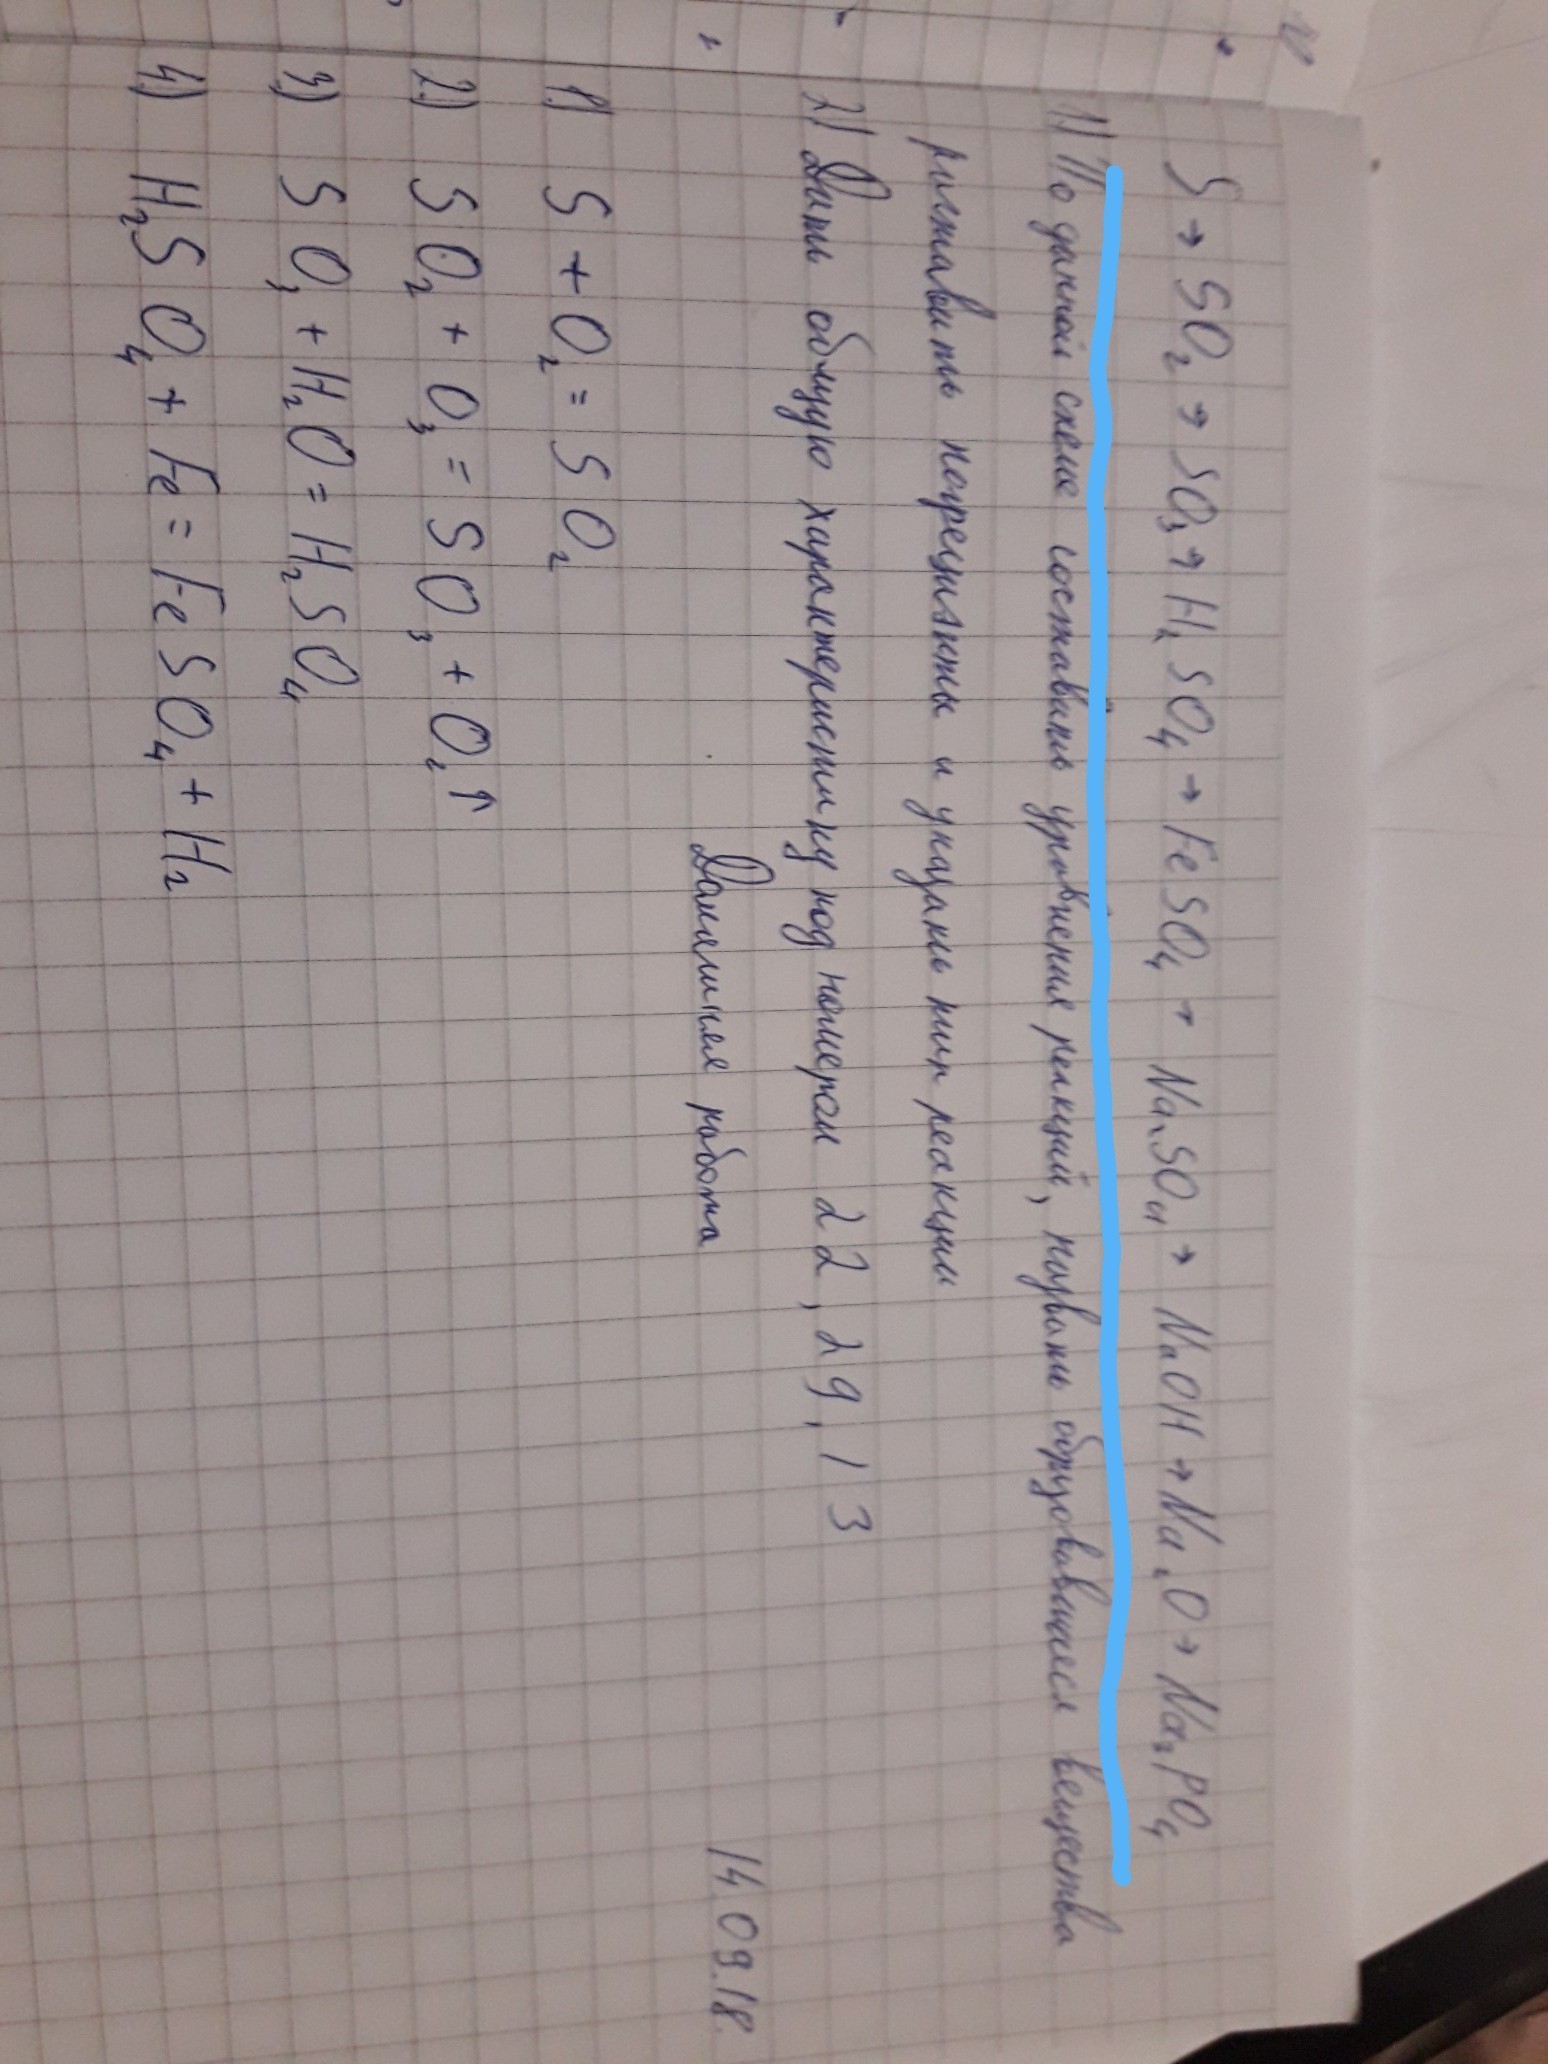 S → SO₂ → SO₃ → H₂SO₄ → FeSO₄ → Na₂SO₄ → NaOH → Na₂O → Na₃PO₄
1) По данной схеме составить уравнения реакций, назвать образовавшиеся вещества
расставить коэффициенты и указать тип реакции
2) Дать общую характеристику под номером 22, 29, 13
Домашняя работа 14.09.18.
1) S + O₂ = SO₂
2) SO₂ + O₃ = SO₃ + O₂↑
3) SO₃ + H₂O = H₂SO₄
4) H₂SO₄ + Fe = FeSO₄ + H₂